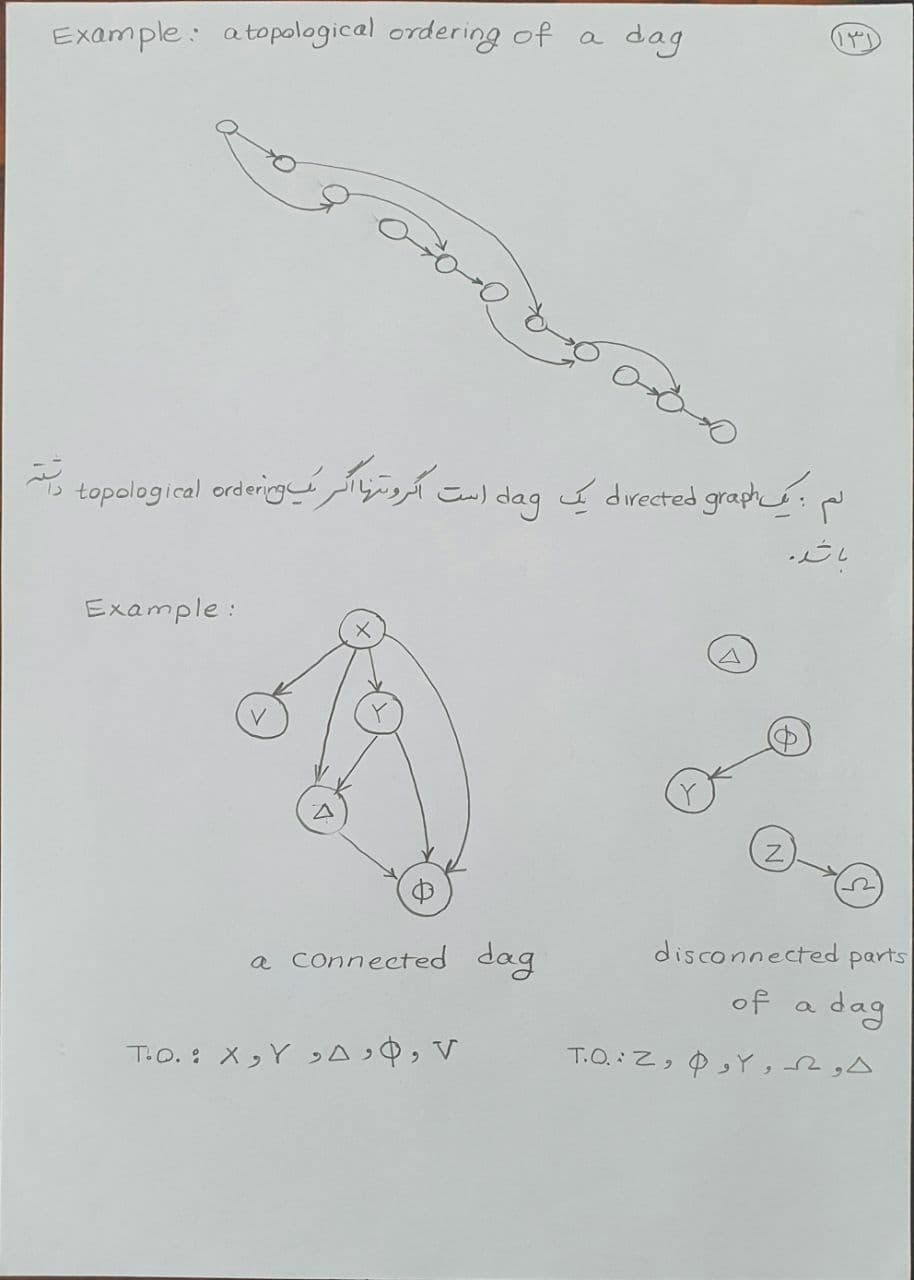 Example: a topological ordering of a dag
۱۳۱
لم: یک directed graph یک dag است اگر و تنها اگر یک topological ordering داشته
باشد.
Example:
X
Δ
V
Y
Φ
Y
Δ
Z
Ω
Φ
a connected dag
disconnected parts
of a dag
T.O.: X, Y, Δ, Φ, V
T.O.: Z, Φ, Y, Ω, Δ